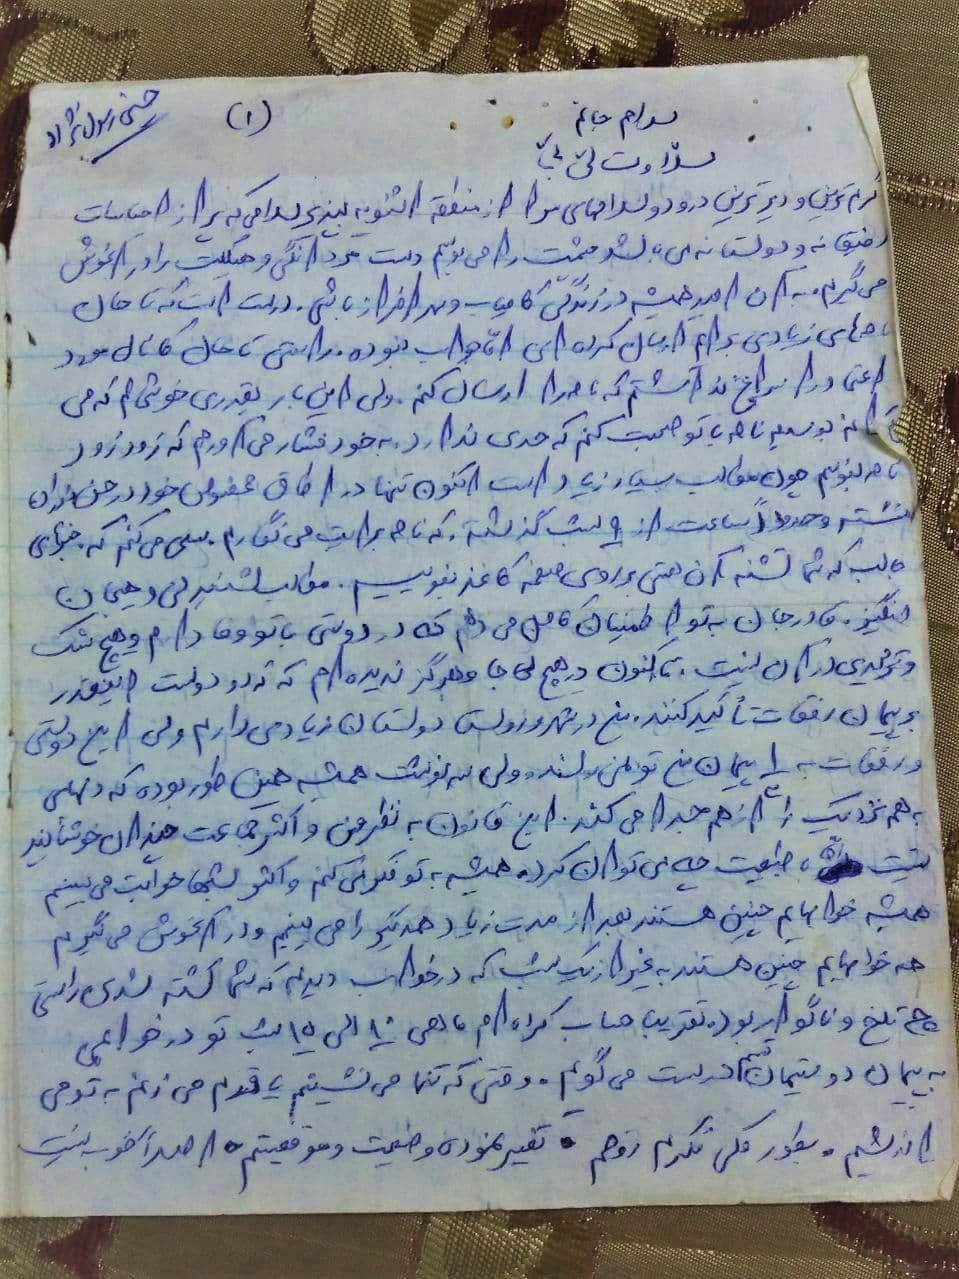 (۱)
سلام جانم
گرمترین و دیرترین درود و سلامهای مرا از منطقه اشنویه بپذیر سلامی که پر از احساسات
رفیقانه و دوستانه می باشد چشمت را می بوسم دست مردانگی و هیکلت را در آغوش
می گیرم به آن امید همیشه در زندگی کامیاب و سرافراز باشی. درست است که تا حال
نامه‌های زیادی برام ارسال کرده ای اما جواب نبوده. راستی تا حال کانال مورد
اعتماد را سراغ نداشتم که نامه را ارسال کنم ولی این بار بقدری خوشحالم که می
توانم بوسیله نامه با تو صحبت کنم که حدی ندارد. به خود فشار می آورم که زود زود
نامه بنویسم چون مطالب بسیار زیاد است اکنون تنها در اطاق مخصوص خود در
نشسته و حدوداً ساعت از ۹ شب گذشته، که نامه برایت می نگارم. سعی می کنم که چیزهای
جالب که شما تشنه آن هستی بر روی صفحه کاغذ بنویسیم. مطالب شنیدنی و هیجان
انگیز. قادر جان به تو اطمینان کامل می دهم که در دوستی با تو وفا دارم و هیچ شک
و تردیدی در آن نیست. تاکنون در هیچ جا و هرگز ندیده ام که دو دوست اینقدر
بر پیمان رفقات تأکید کنند. من در شهر و روستا دوستان زیاد می دارم ولی این دوستی
و رفقات به پیمان من تو نمی رسند. ولی سرنوشت همیشه همین طور بوده که دلهای
به هم نزدیک را از هم جدا می کند. این قانون به نظر من و اکثر جماعت چندان خوشایند
نیست با طبیعت چه می توان کرد. همیشه به تو فکر می کنم و اکثر شبها خوابت می بینم
همیشه خوابهایم چنین هستند بعد از مدت زیاد همدیگر را می بینیم و در آغوش می گیرم
همه خوابهایم چنین هستند به غیر از یک شب که در خواب دیدم که شما کشته شدی راستی
چه تلخ و ناگوار بود. تقریبا حساب کرده ام ماهی ۱۰ الی ۱۵ شب تو در خوابمی
به پیمان دوستیمان قسم درست می گویم. وقتی که تنها می نشینم یا قدم می زنم به تو می
اندیشم. بطور کلی فکرم روحم تغییر نموده وضعیت و موقعیتم اصلاً خوب نیست